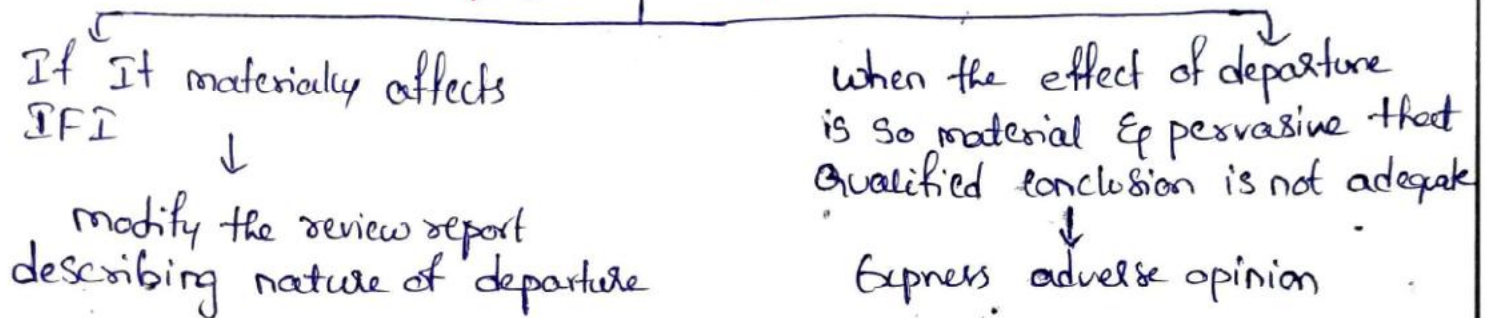 If It materially affects
IFI
↓
modify the review report
describing nature of departure
when the effect of departure
is so material & pervasive that
Qualified conclusion is not adequate
↓
Express adverse opinion